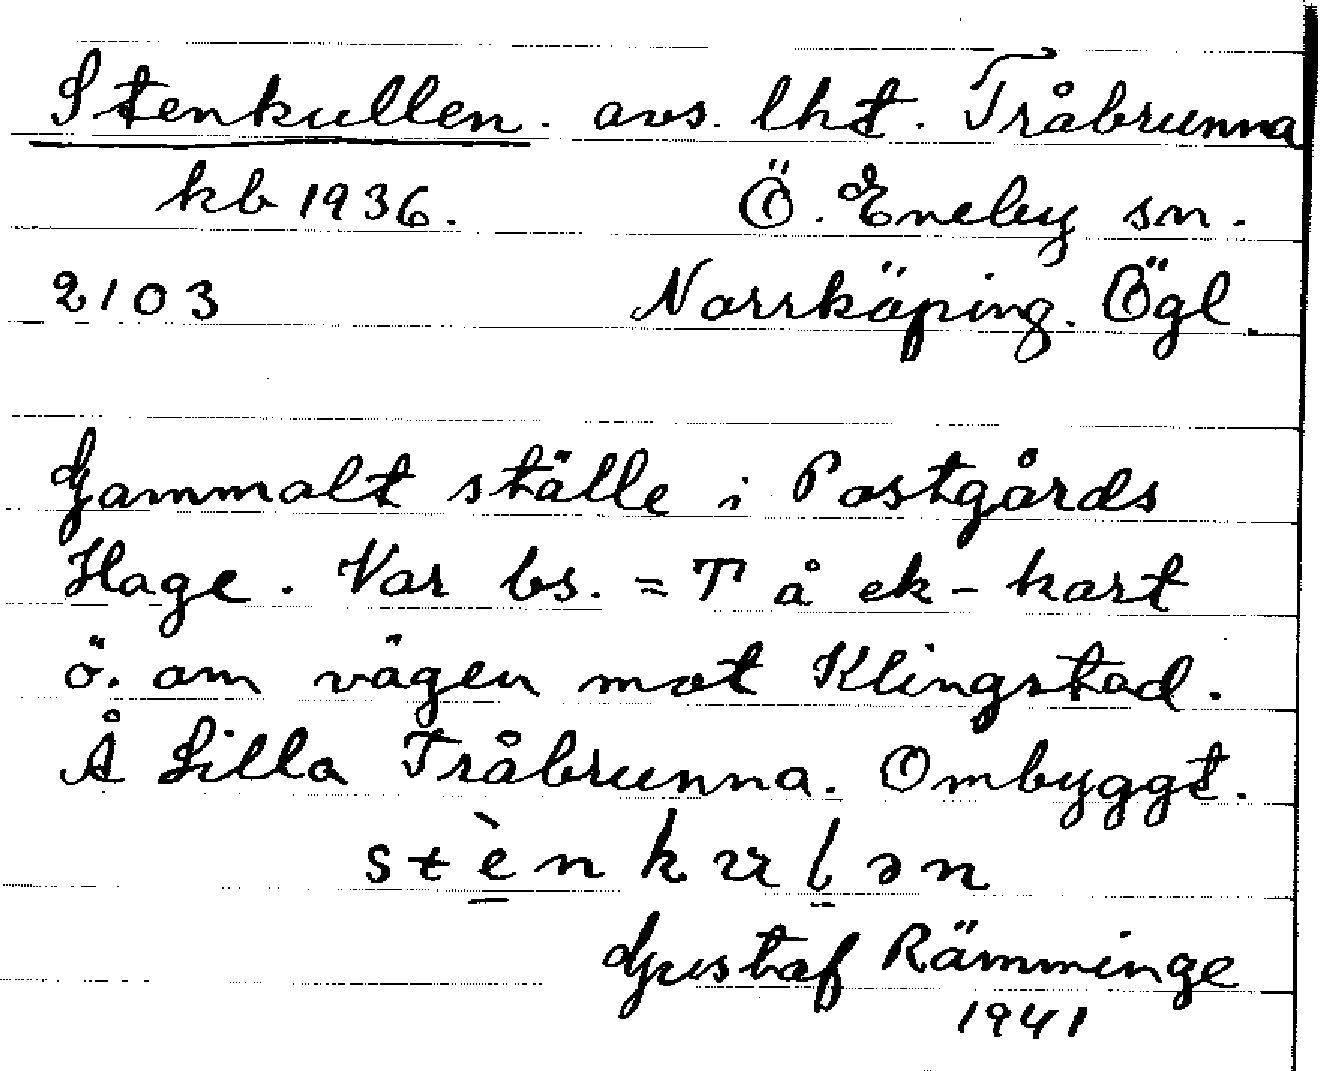 Stenkullen. avs. lht. Tråbrunna
kb 1936. Ö. Eneby sn.
2103 Norrköping. Ögl.
Gammalt ställe i Postgårds
Hage. Var bs. = T å ek-kart
ö. om vägen mot Klingstad.
Å Lilla Tråbrunna. Ombyggt.
stènkulən
Gustaf Rämminge
1941